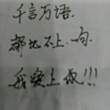 千言万语.
都比不上一句.
我爱上你!!!